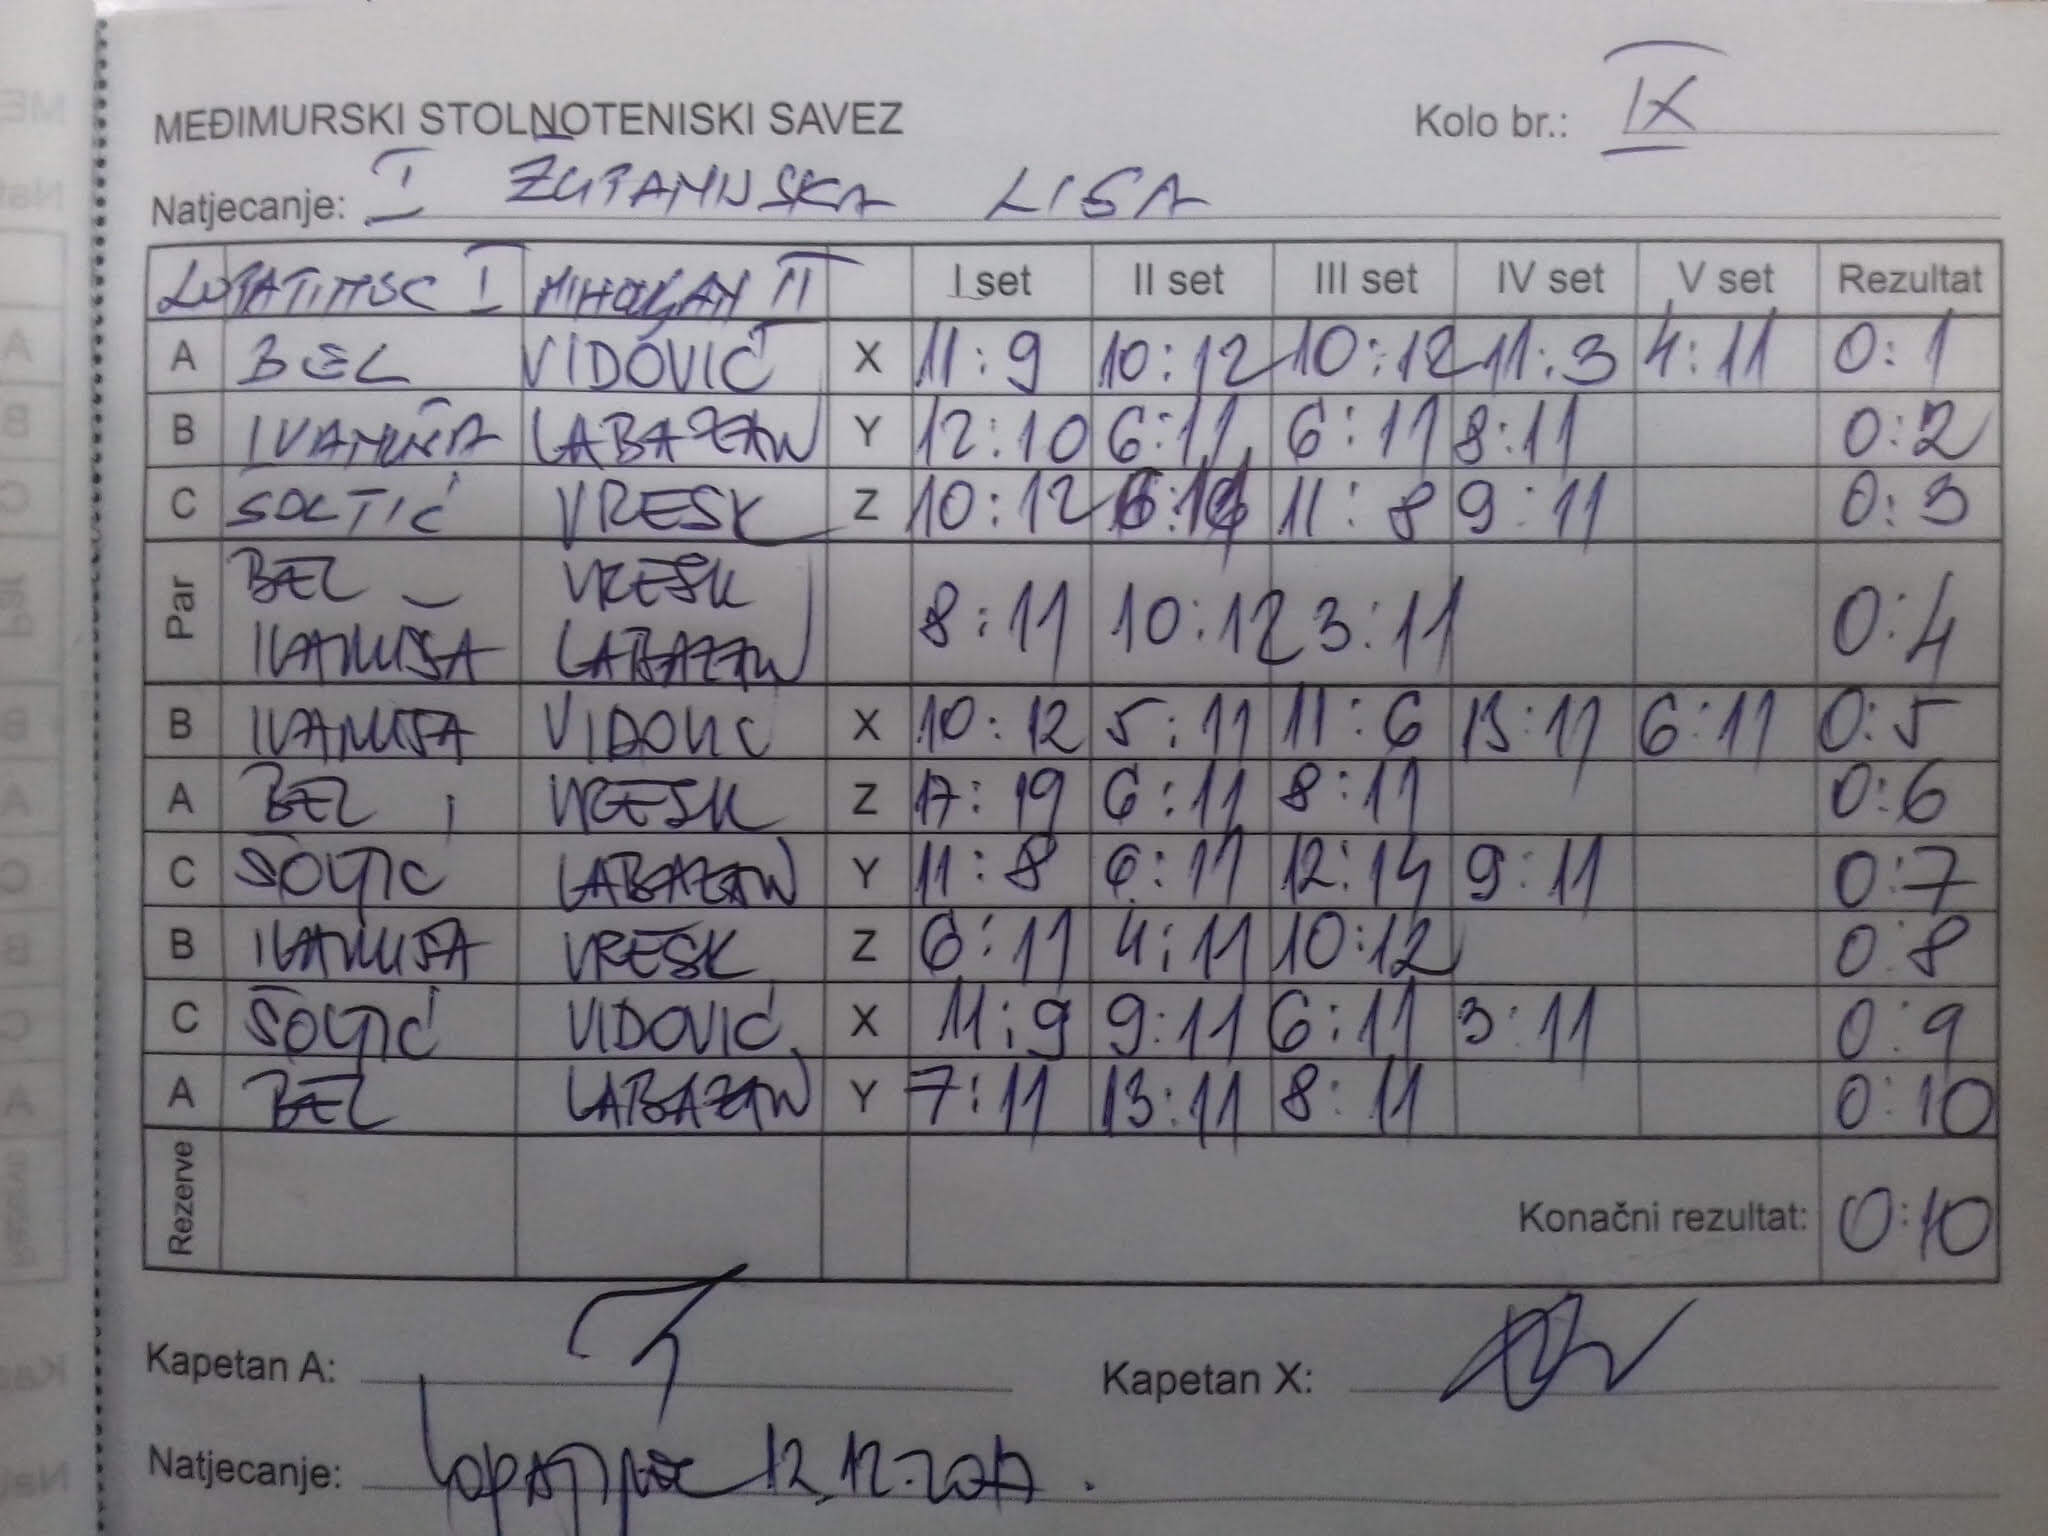 MEĐIMURSKI STOLNOTENISKI SAVEZ Kolo br.: IX
Natjecanje: I ŽUPANIJSKA LIGA
LOPATINEC I MIHOVLJAN II I set II set III set IV set V set Rezultat
A BEL VIDOVIĆ X 11:9 10:12 10:12 11:3 4:11 0:1
B IVANUŠA LABAZAN Y 12:10 6:11 6:11 8:11 0:2
C ŠOLTIĆ VRESK Z 10:12 11:8 9:11 0:3
Par BEL – VRESK 8:11 10:12 3:11 0:4
IVANUŠA LABAZAN
B IVANUŠA VIDOVIC X 10:12 5:11 11:6 13:11 6:11 0:5
A BEL VRESK Z 17:19 6:11 8:11 0:6
C ŠOLTIĆ LABAZAN Y 11:8 6:11 12:14 9:11 0:7
B IVANUŠA VRESK Z 6:11 4:11 10:12 0:8
C ŠOLTIĆ VIDOVIĆ X 11:9 9:11 6:11 3:11 0:9
A BEL LABAZAN Y 7:11 13:11 8:11 0:10
Rezerve Konačni rezultat: 0:10
Kapetan A: Kapetan X:
Natjecanje: Lopatinec 12.12.2017.